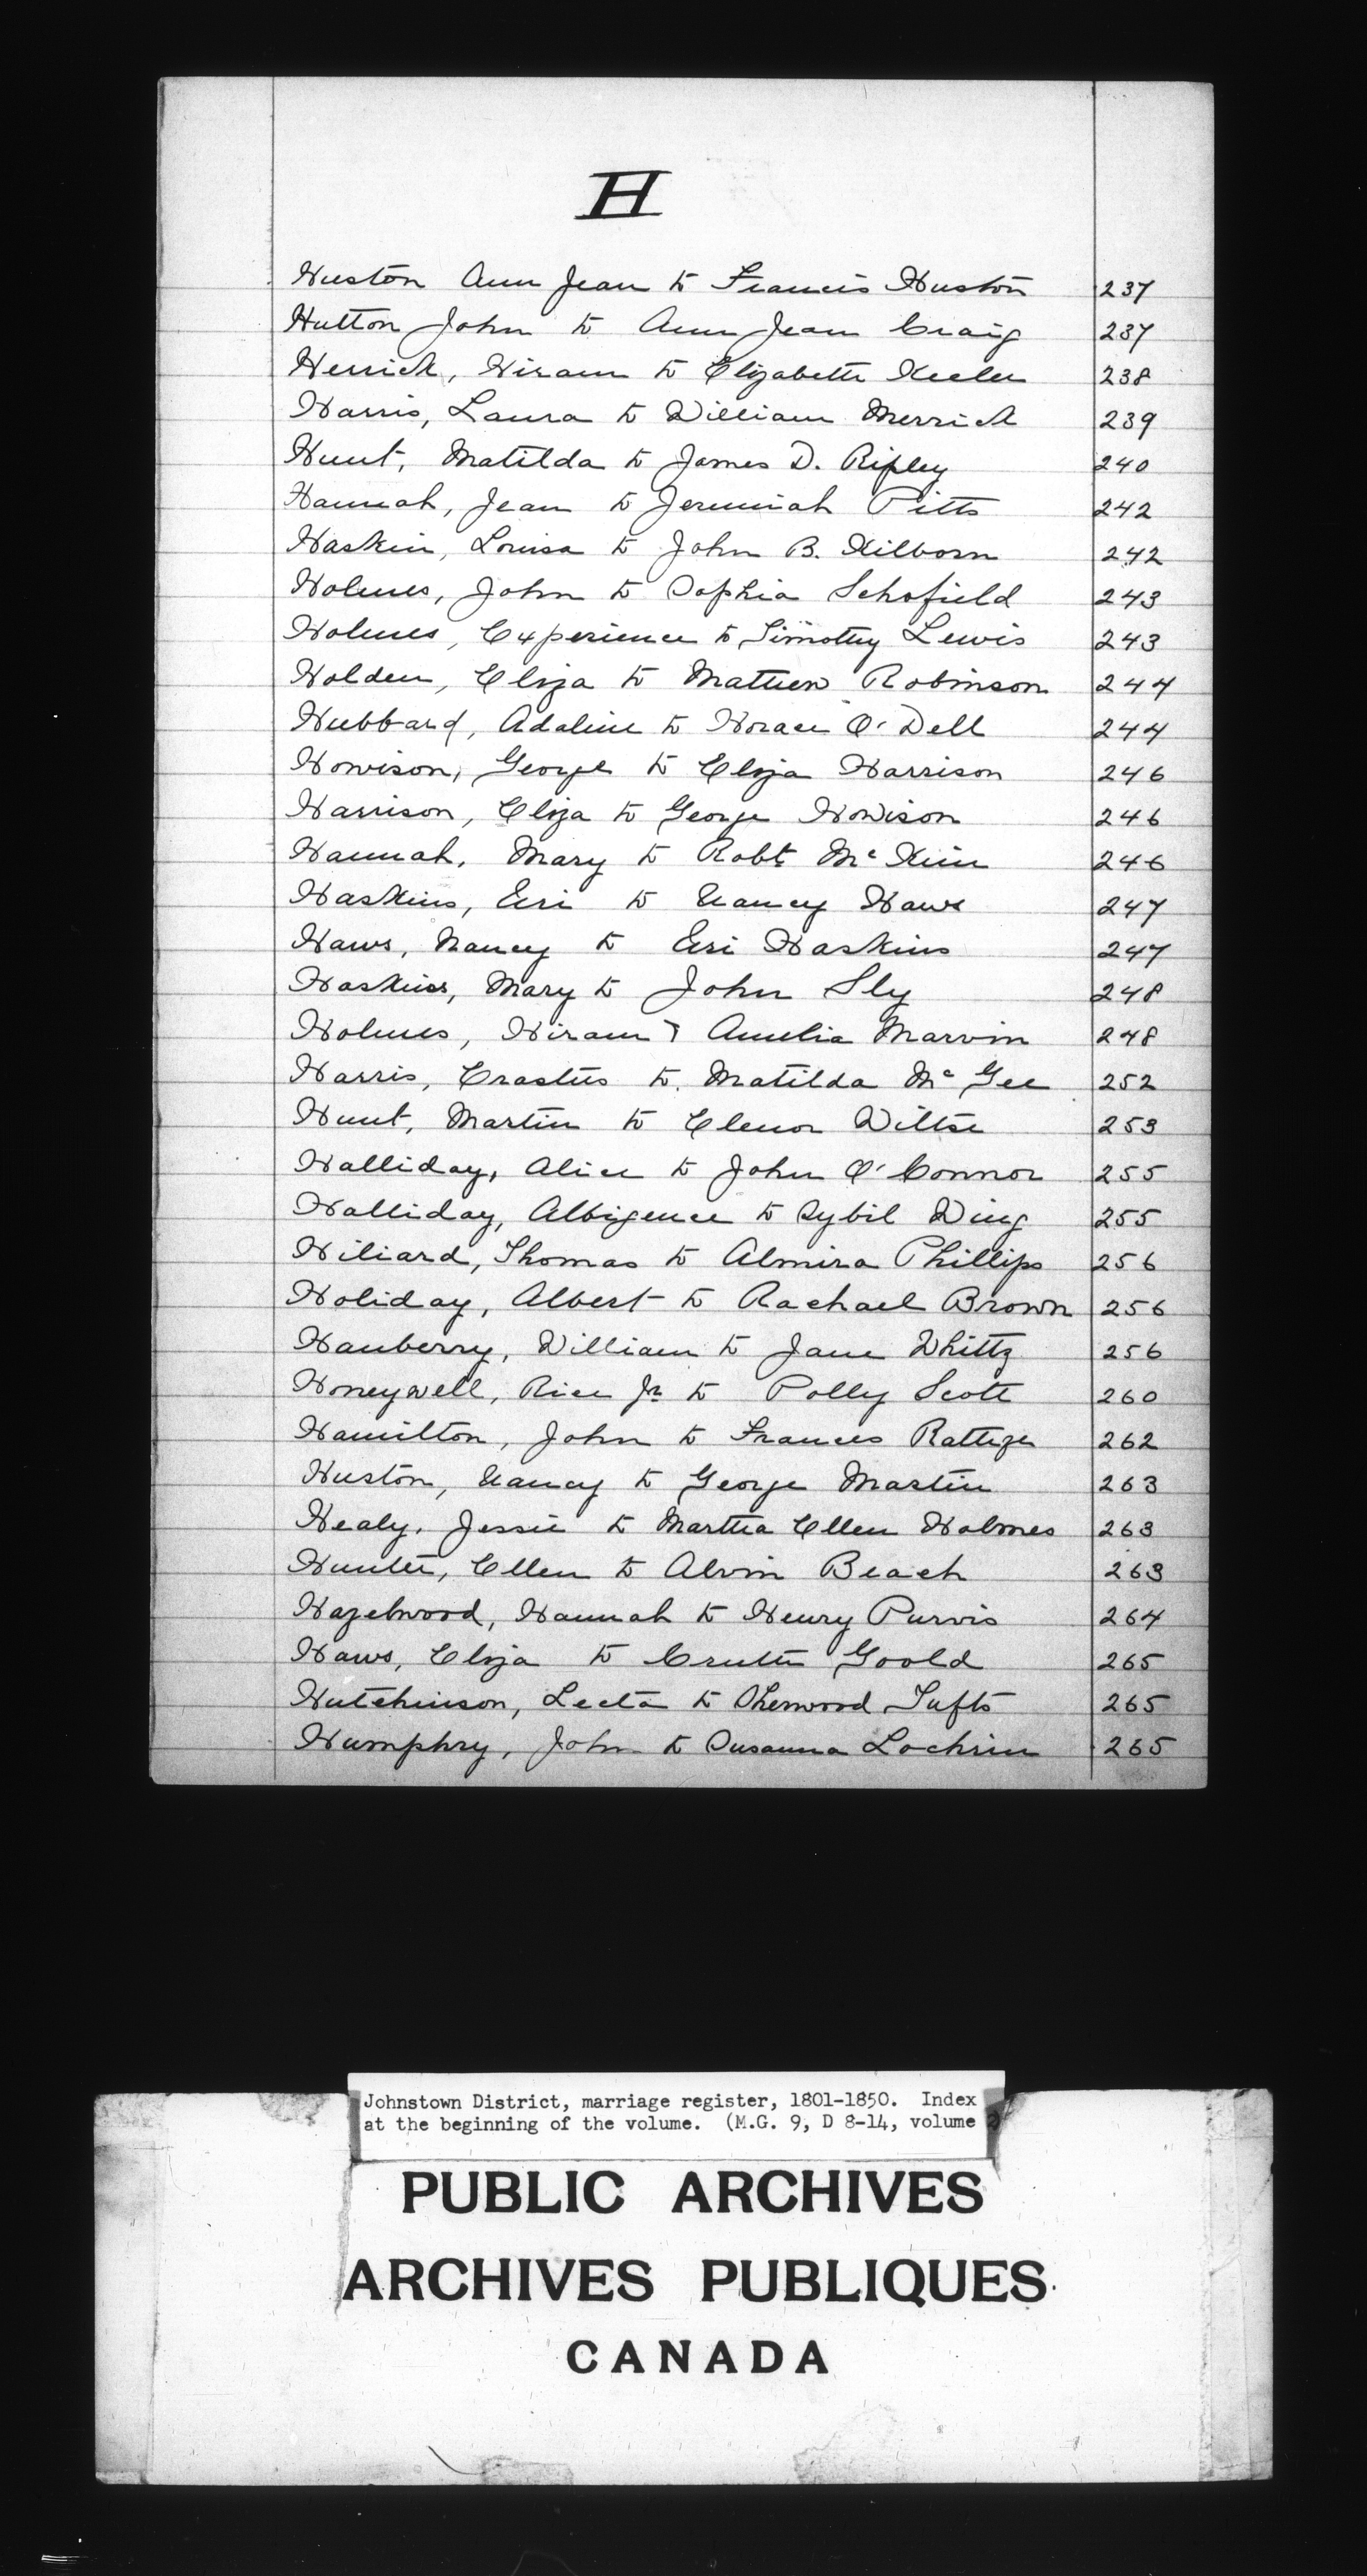 H
Huston Ann Jean to Francis Huston 237
Hutton John to Ann Jean Craig 237
Herrick, Hiram to Elizabeth Keeler 238
Harris, Laura to William Merrick 239
Hunt, Matilda to James D. Ripley 240
Hannah, Jean to Jeremiah Pitts 242
Haskin, Louisa to John B. Kilborn 242
Holmes, John to Sophia Schofield 243
Holmes, Experience to Timothy Lewis 243
Holden, Eliza to Mathew Robinson 244
Hubbard, Adaline to Horace O'Dell 244
Howison, George to Eliza Harrison 246
Harrison, Eliza to George Howison 246
Hannah, Mary to Robt McKim 246
Haskins, Eri to Nancy Haws 247
Haws, Nancy to Eri Haskins 247
Haskins, Mary to John Sly 248
Holmes, Hiram & Amelia Marvin 248
Harris, Erastus to Matilda McGee 252
Hunt, Martin to Elenor Wiltse 253
Halliday, Alice to John O'Connor 255
Halliday, Albigence to Sybil Wing 255
Hiliard, Thomas to Almira Phillips 256
Holiday, Albert to Rachael Brown 256
Hanberry, William to Jane 256
Honeywell, Rice Jr. to Polly Scott 260
Hamilton, John to Frances 262
Huston, Nancy to George Martin 263
Healy, Jessie to Martha Ellen Holmes 263
Hunter, Ellen to Alvin Beach 263
Hazelwood, Hannah to Henry Purvis 264
Haws, Eliza to Goold 265
Hutchinson, Lecta to Sherwood Tufts 265
Humphry, John to Susanna Lochrin 265
Johnstown District, marriage register, 1801-1850. Index
at the beginning of the volume. (M.G. 9, D 8-14, volume 2)
PUBLIC ARCHIVES
ARCHIVES PUBLIQUES
CANADA